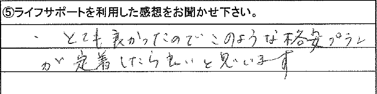 ⑤ライフサポートを利用した感想をお聞かせ下さい。
・とても良かったのでこのような格安プラン
が定着したら良いと思います